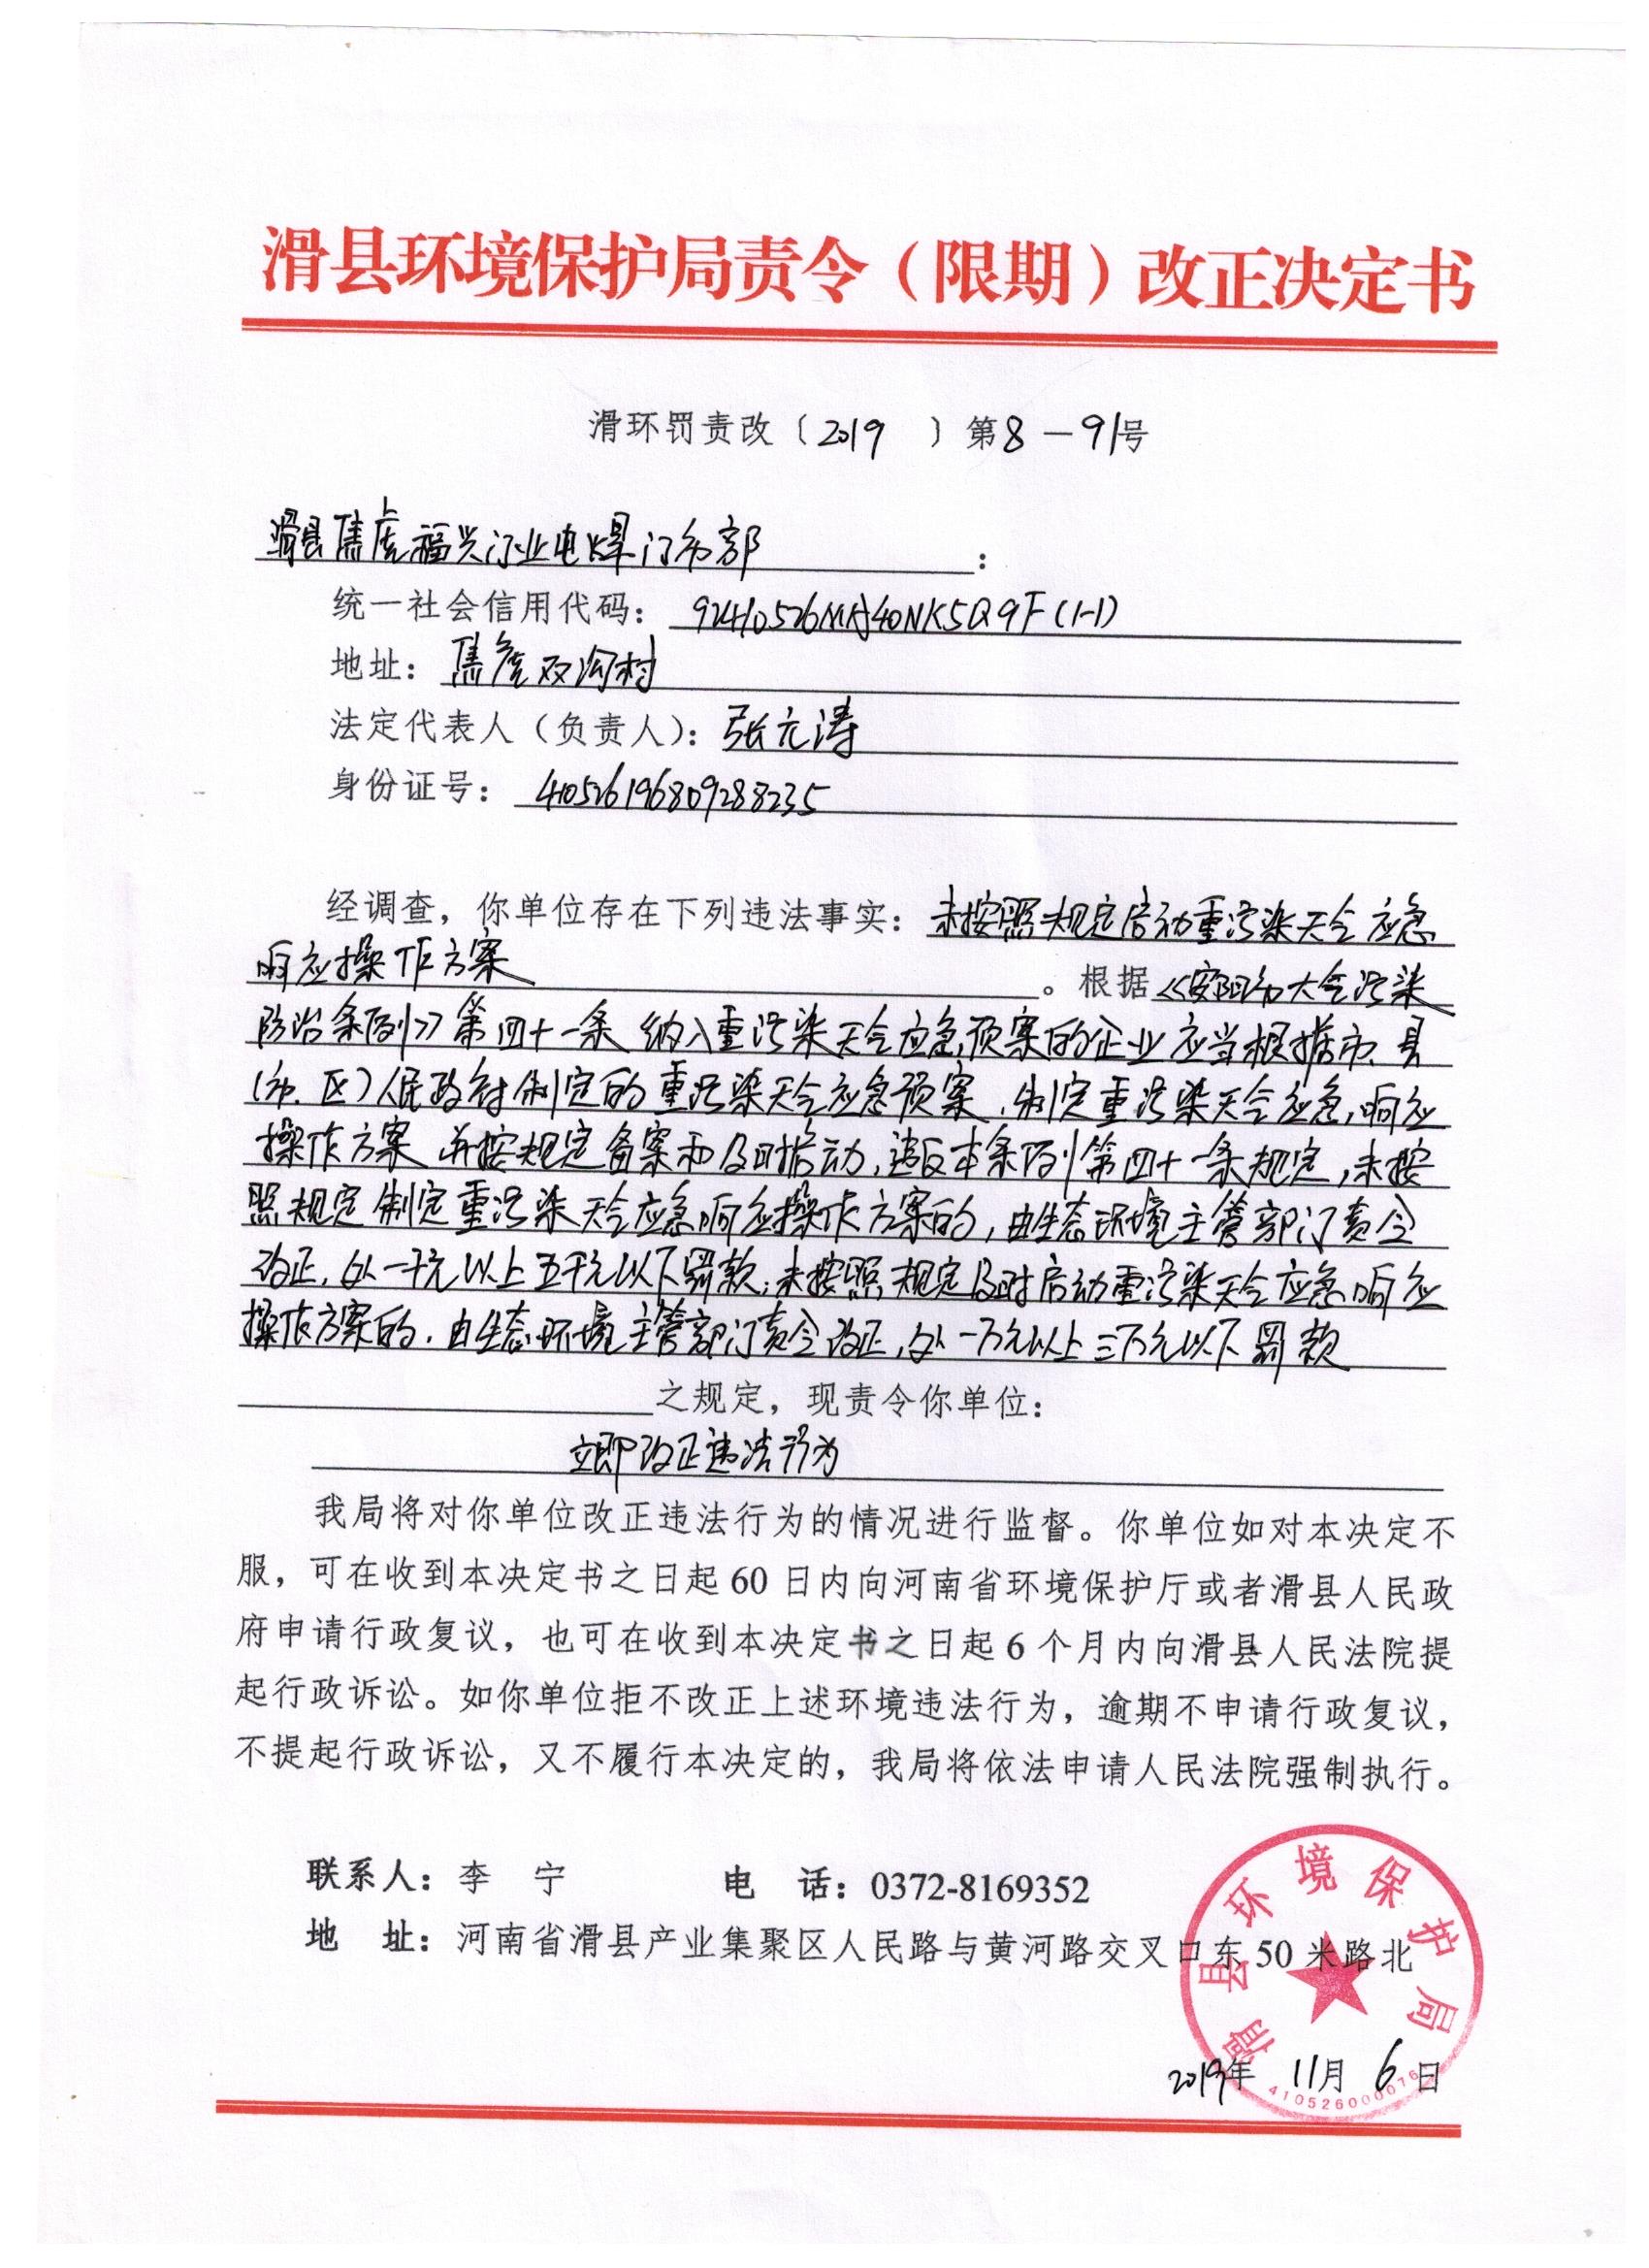 滑县环境保护局责令（限期）改正决定书
滑环罚责改〔2019 〕第8-91号
滑县焦虎福兴门业电焊门市部：
统一社会信用代码：92410526MA40NK5Q9F(1-1)
地址：焦虎双沟村
法定代表人（负责人）：张元涛
身份证号：410526196809288235
经调查，你单位存在下列违法事实：未按照规定启动重污染天气应急
响应操作方案。根据《安阳市大气污染
防治条例》第四十一条 纳入重污染天气应急预案的企业应当根据市、县
（市、区）人民政府制定的重污染天气应急预案，制定重污染天气应急响应
操作方案，并按规定备案和及时启动，违反本条例第四十一条规定，未按
照规定制定重污染天气应急响应操作方案的，由生态环境主管部门责令
改正，处一千元以上五千元以下罚款；未按照规定及时启动重污染天气应急响应
操作方案的，由生态环境主管部门责令改正，处一万元以上三万元以下罚款
之规定，现责令你单位：
立即改正违法行为
我局将对你单位改正违法行为的情况进行监督。你单位如对本决定不
服，可在收到本决定书之日起60日内向河南省环境保护厅或者滑县人民政
府申请行政复议，也可在收到本决定书之日起6个月内向滑县人民法院提
起行政诉讼。如你单位拒不改正上述环境违法行为，逾期不申请行政复议，
不提起行政诉讼，又不履行本决定的，我局将依法申请人民法院强制执行。
联系人：李 宁 电 话：0372-8169352
地 址：河南省滑县产业集聚区人民路与黄河路交叉口东50米路北
滑县环境保护局
2019年 11月 6日